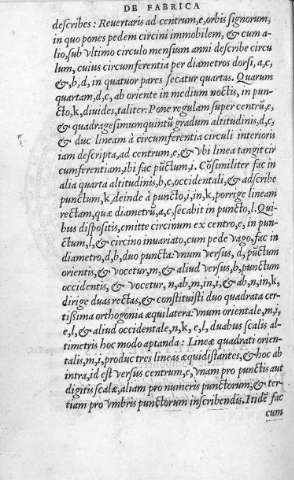 DE FABRICA
describes: Revertaris ad centrum, e, orbis signorum,
in quo pones pedem circini immobilem, & cum a-
lio, sub vltimo circulo mensium anni describe circu
lum, cuius circumferentia per diametros dorsi, a, c,
&, b, d, in quatuor pares secatur quartas. Quarum
quartam, d, c, ab oriente in medium noctis, in pun-
cto, k, divides, taliter: Pone regulam super centrũ, e,
& quadragesimumquintũ gradum altitudinis, d, c,
& duc lineam à circumferentia circuli interioris
iam descripta, ad centrum, e, & vbi linea tangit cir
cumferentiam, ibi fac pũctum, i. Cõsimiliter fac in
alia quarta altitudinis, b, c, occidentali, & adscribe
punctum, k, deinde à puncto, i, in, k, porrige lineam
rectam, quæ diametrũ, a, c, secabit in puncto, l. Qui-
bus dispositis, emitte circinum ex centro, e, in pun-
ctum, l, & circino inuariato, cum pede vago, fac in
diametro, d, b, duo pũcta: vnum versus, d, pũctum
orientis, & vocetur, m, & aliud versus, b, punctum
occidentis, & vocetur, n, ab, m, in, i, & ab, n, in, k,
dirige duas rectas, & constituisti duo quadrata cer-
tissima orthogonia æquilatera: vnum orientale, m, i,
e, l, & aliud occidentale, n, k, e, l, duabus scalis al-
timetris hoc modo aptanda: Lineæ quadrati orien-
talis, m, i, produc tres lineas æquidistantes, & hoc ab
intra, id est versus centrum, e, vnam pro punctis aut
digitis scalæ, aliam pro numeris punctorum, & ter-
tiam pro vmbris punctorum inscribendis. Itidẽ fac
cum